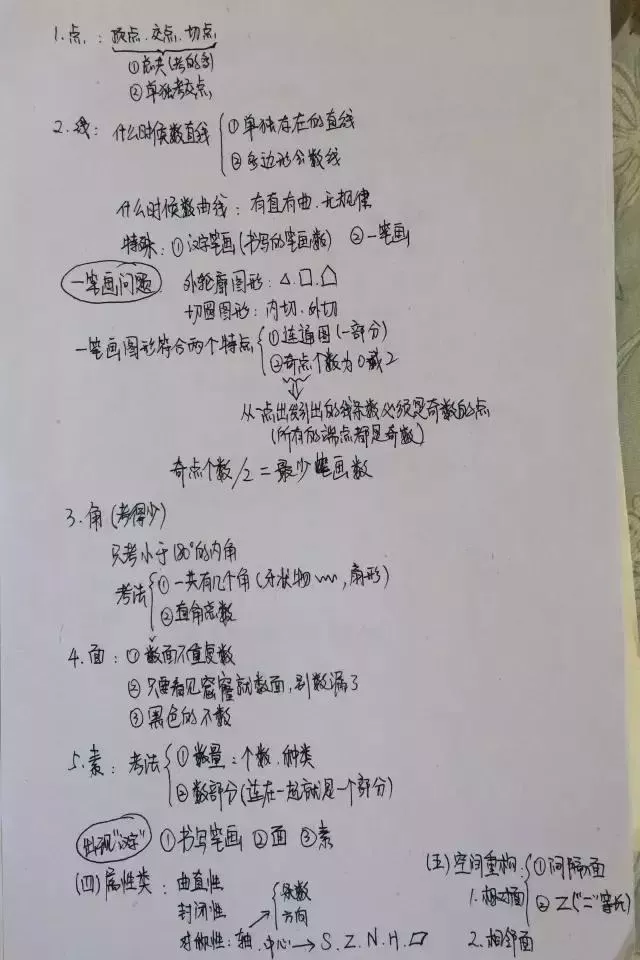 1.点: 顶点.交点.切点
①总夹(考的多)
②单独考交点
2.线: 什么时候数直线 ①单独存在的直线
②多边形分数线
什么时候数曲线: 有直有曲.无规律
特殊: ①汉字笔画(书写的笔画数) ②一笔画
一笔画问题 外轮廓图形: △.□.⌂
切圆图形: 内切.外切
一笔画图形符合两个特点 ①连通图(一部分)
②奇点个数为0或2
从一点出发引出的线条数必须是奇数的点
(所有的端点都是奇数)
奇点个数/2=最少笔画数
3.角(考得少)
只考小于180°的内角
考法 ①一共有几个角(牙状物, 扇形)
②直角总数
4.面: ①数面不重复数
②只要看见窟窿就数面,别数漏了
③黑色的不数
5.素: 考法 ①数量: 个数.种类
②数部分(连在一起就是一个部分)
出现"汉字" ①书写笔画 ②面 ③素
(四)属性类: 曲直性
封闭性
对称性: 轴.中心→S.Z.N.H.▱
条数
方向
(五)空间重构: ①间隔面
1.相对面 ②Z("二"字氏)
2.相邻面